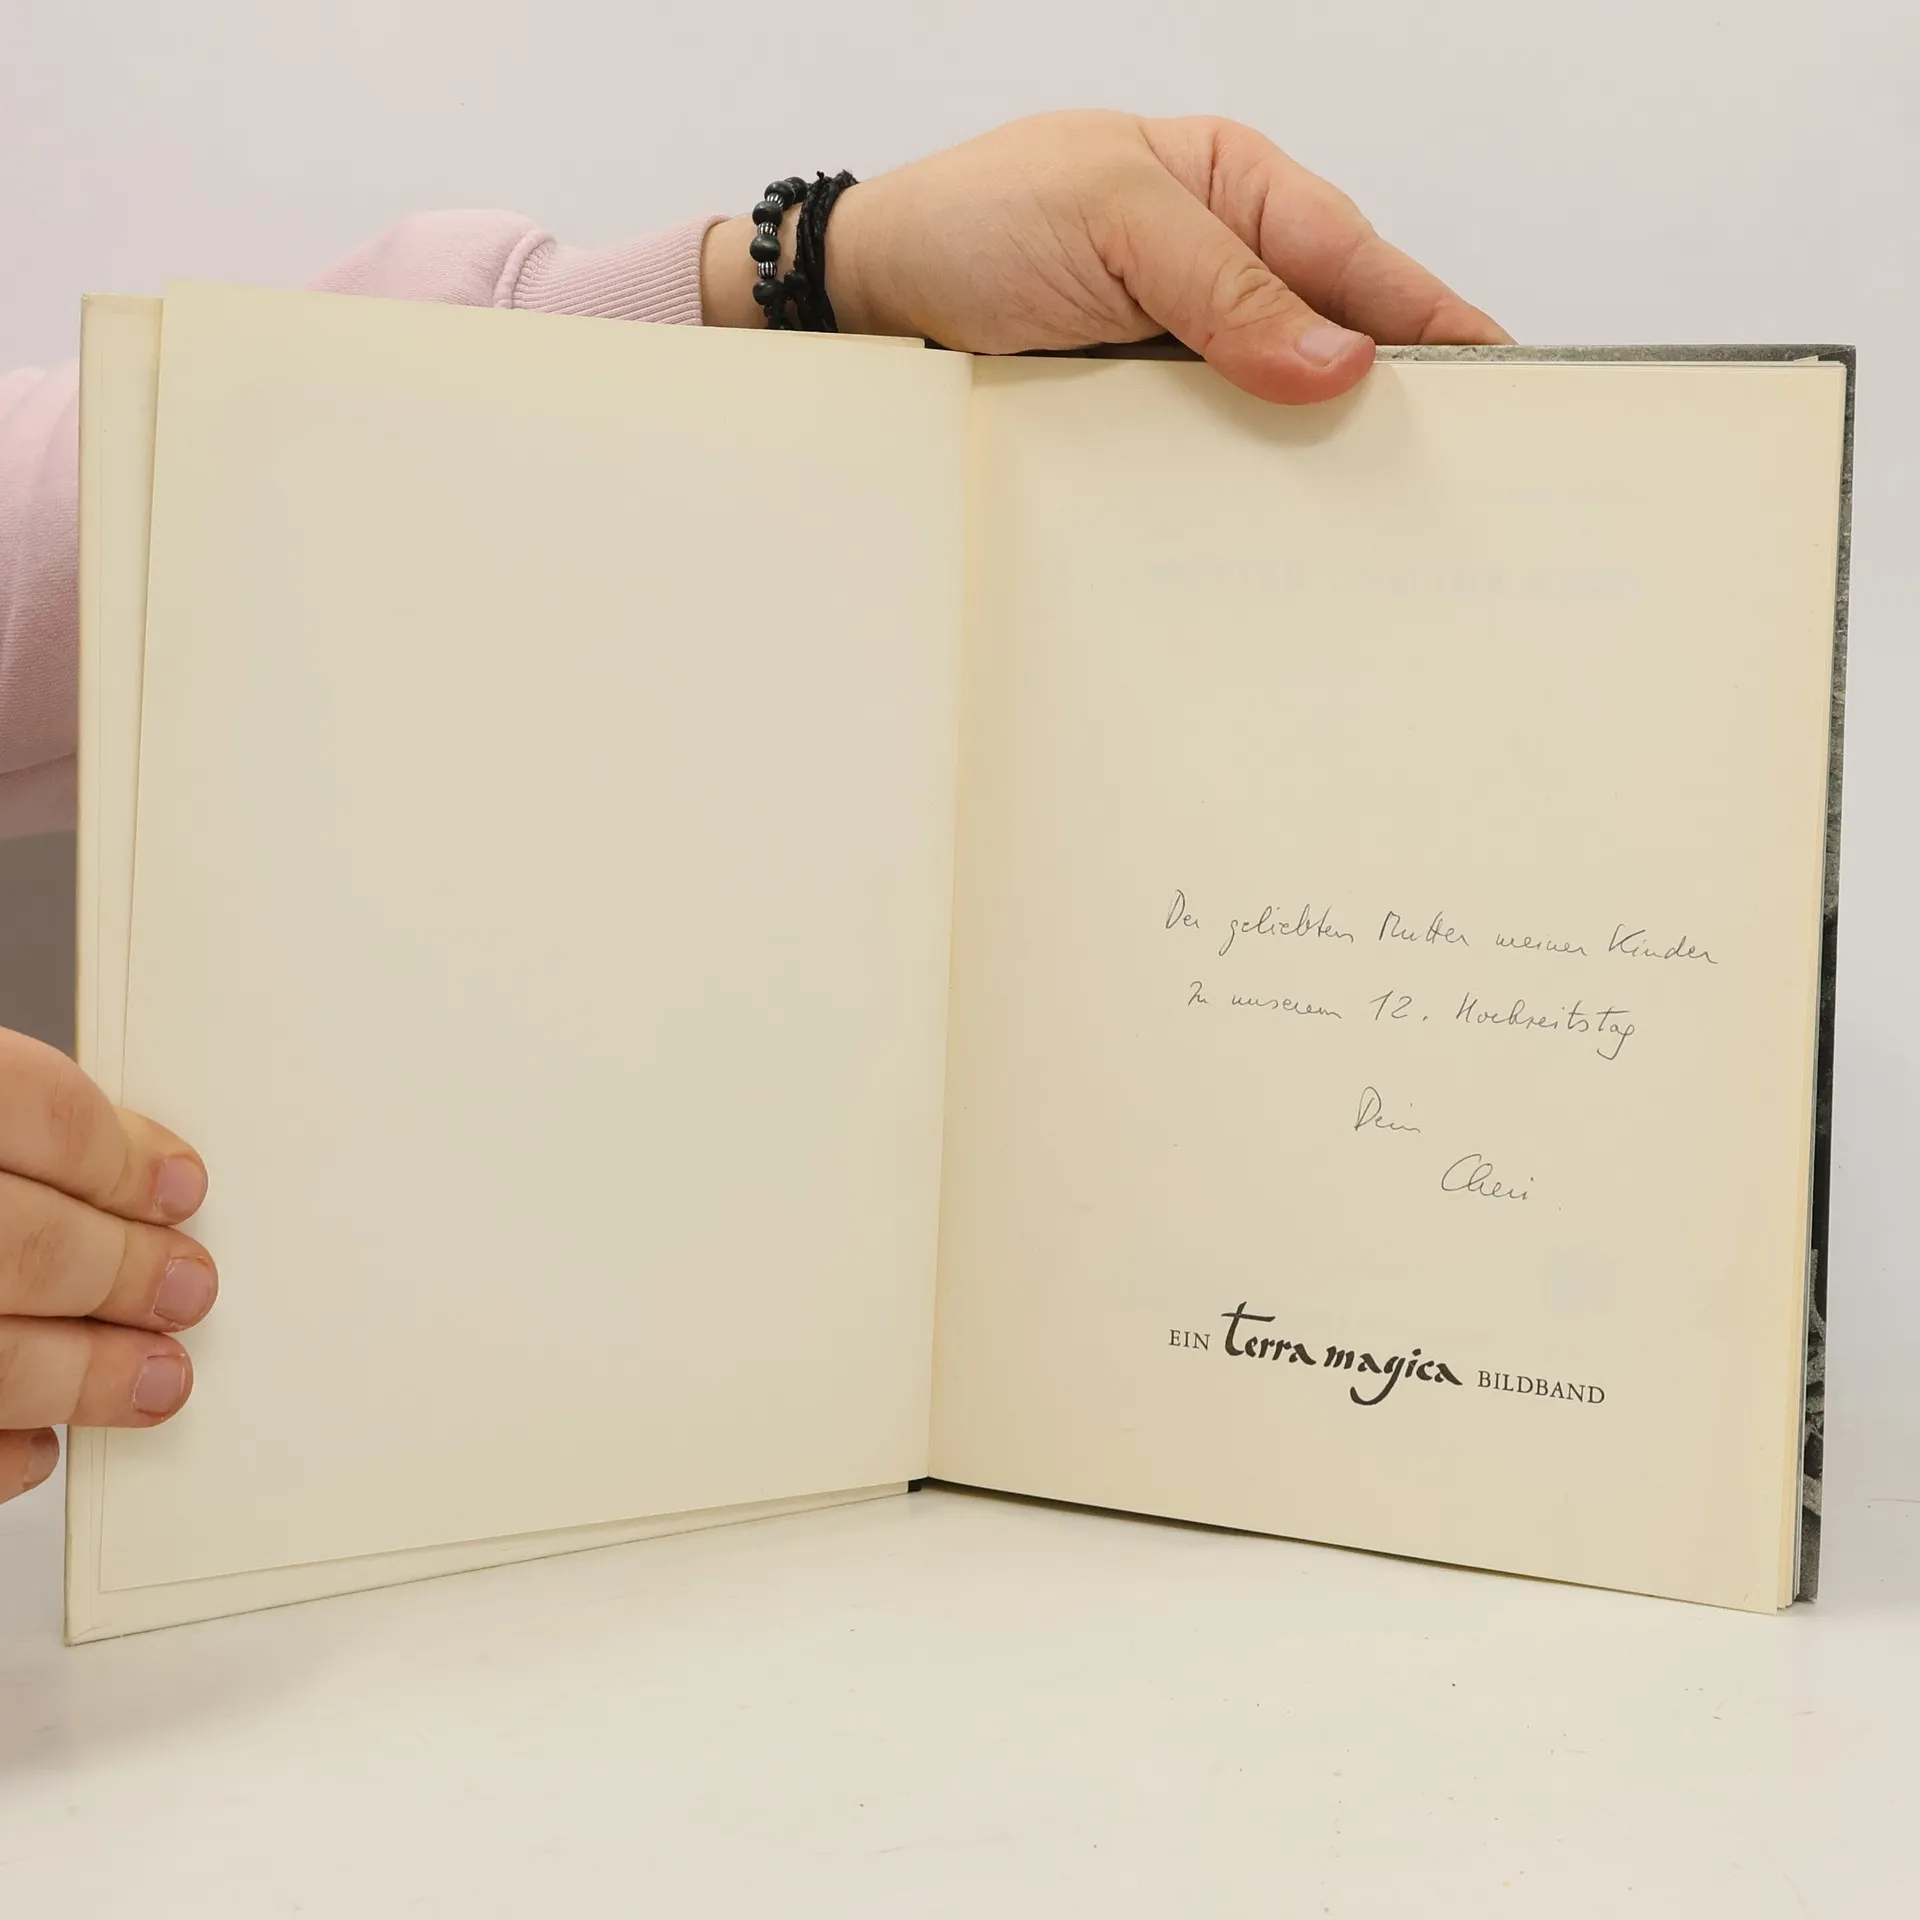 Der geliebten Mutter meiner Kinder
Zu unserem 12. Hochzeitstag
Dein
Cheri.
EIN terra magica BILDBAND